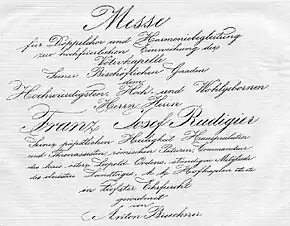 Messe
für Doppelchor und Harmoniebegleitung
zur hochfeierlichen Einweihung der
Votivkapelle
Seiner Bischöflichen Gnaden
dem
Hochwürdigsten, Hoch und Wohlgebornen
Herrn Herrn
Franz Josef Rudigier
Seiner päpstlichen Heiligkeit Hausprälaten
und Thronassistent, römischen Patrizier, Commandeur
des kais. österr. Leopold Ordens, ständigen Mitgliede
des Landtages, k. k. Hofkaplan
in tiefster Ehrfurcht
gewidmet
von
Anton Bruckner